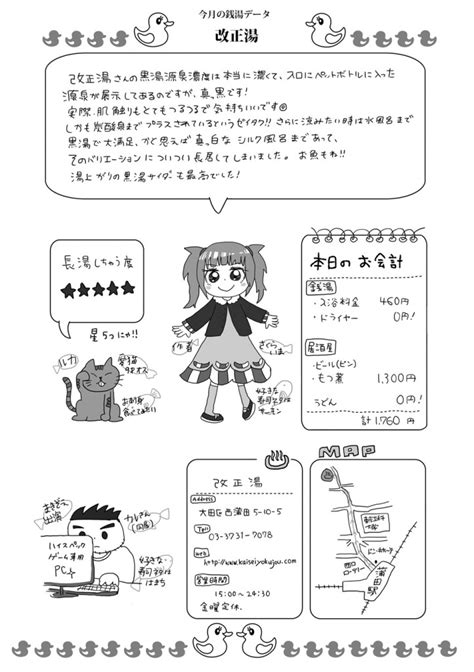 今月の銭湯データ
改正湯
改正湯さんの黒湯源泉濃度は本当に濃くて、フロにペットボトルに入った
源泉が展示してあるのですが、真っ黒です!
実際、肌触りもとてもつるつるで気持ちいいです◎
しかも炭酸泉までプラスされているというゼイタク!! さらに涼みたい時は水風呂まで
黒湯で大満足、かと思えば真っ白な シルク風呂まであって、
そのバリエーションについつい長居してしまいました。お魚もね!!
湯上がりの黒湯サイダーも最高でした!
長湯しちゃう度
★★★★★
星5つにゃ!!
ルカ
愛猫
9才オス
お刺身
食べてみたい
作者
さくら
いま
好きな
寿司ネタは
サーモン
本日のお会計
銭湯
・入浴料金 460円
・ドライヤー 0円!
居酒屋
・ビール(ビン)
・もつ煮 1,300円
うどん 0円!
計1,760円
まさかの
出演
カレさん
(同居)
ハイスペック
ゲーム専用
PC
好きな
寿司ネタは
はまち
改正湯
Address
大田区西蒲田5-10-5
Tell
03-3731-7078
web
http://www.kaiseiyokujou.com
営業時間
15:00~24:30
金曜定休。
MAP
東京工科
大学
ドン・キホーテ
西口
ロータリー
蒲田駅